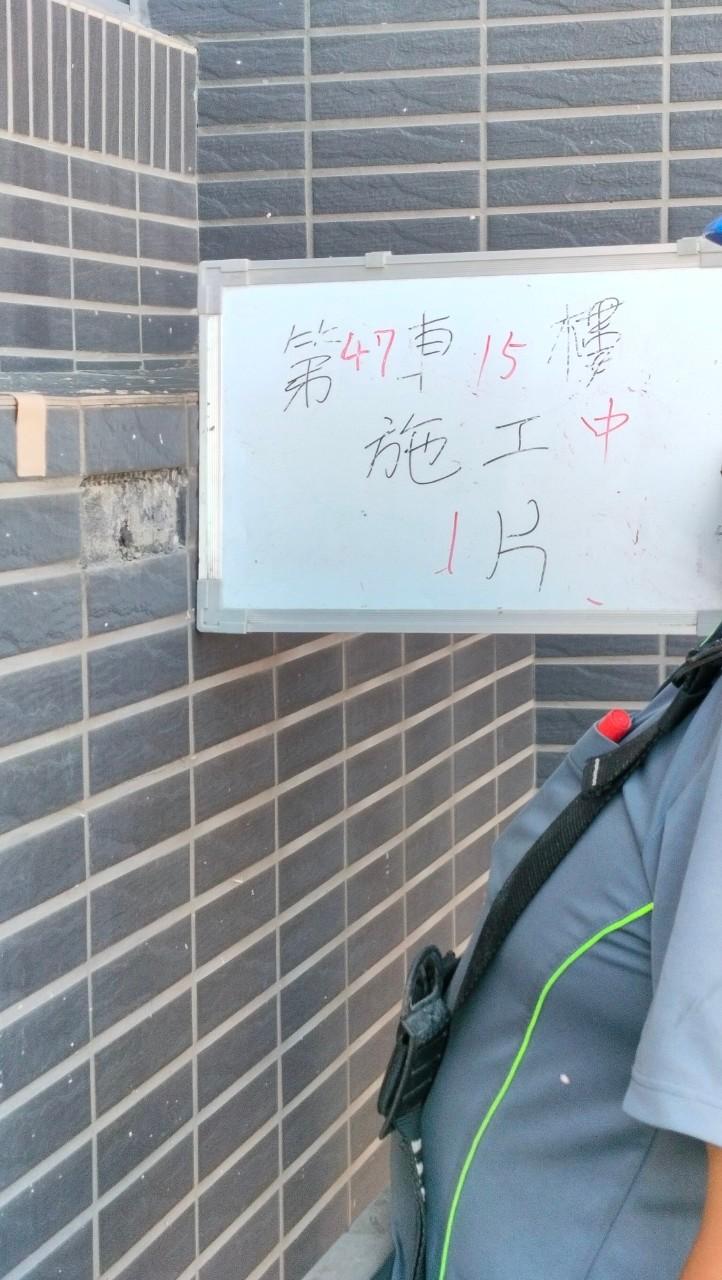 第47車15樓
施工中
1片